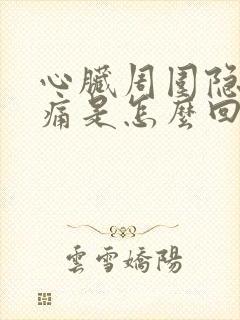 心臟周圍隐
痛是怎麼回
雲雪嬌陽